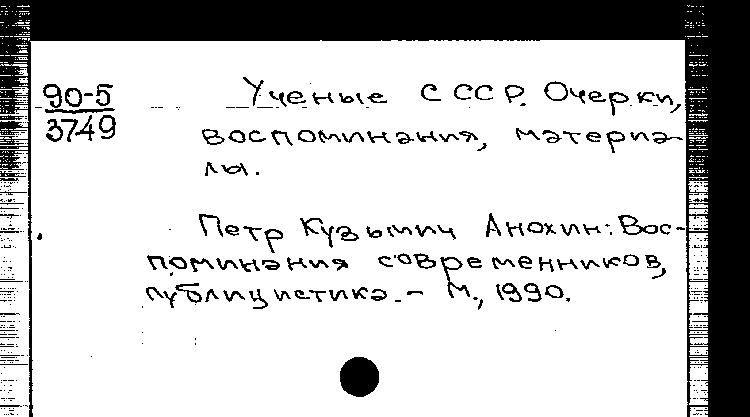 90-5
3749
Ученые СССР. Очерки,
воспоминания, материа-
лы.
Петр Кузьмич Анохин: Вос-
поминания современников,
публицистика. - М., 1990.